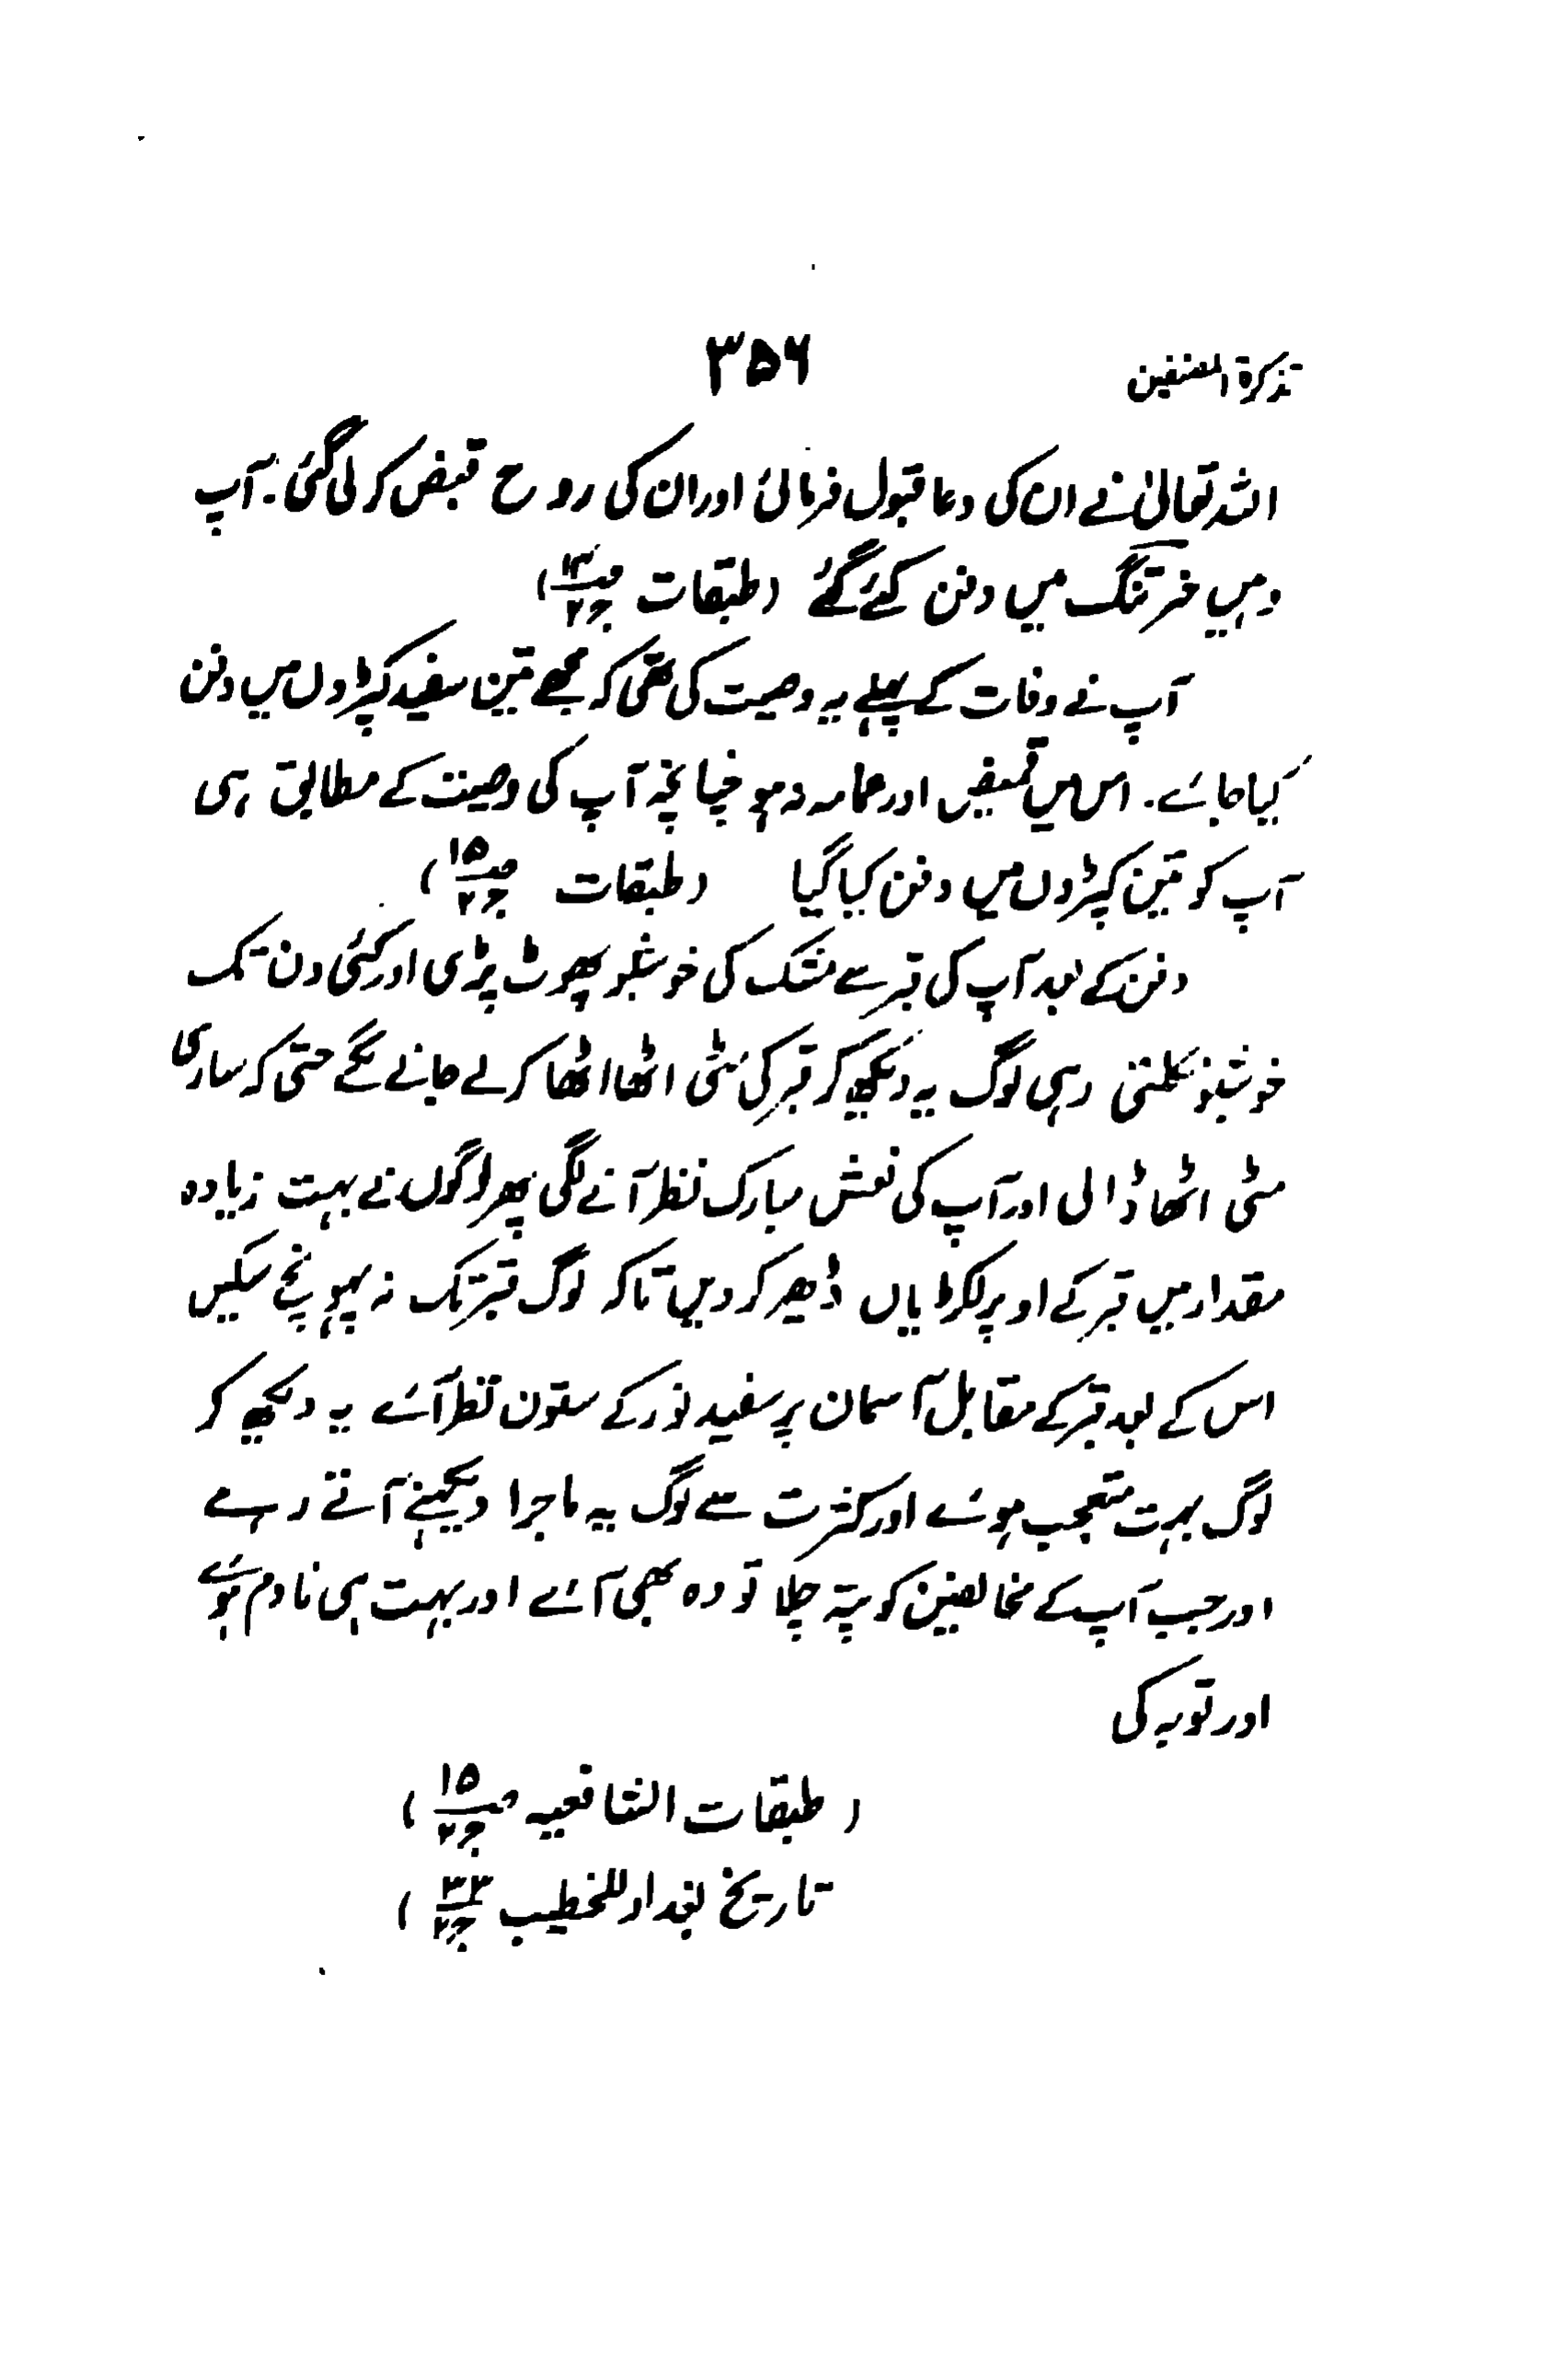 تذکرۃ المصنفین
۳۵۶
اللہ تعالیٰ نے ان کی دعا قبول فرمائی اور ان کی روح قبض کر لی گئی۔ آپ
وہیں خرتنگ میں دفن کئے گئے (طبقات ص۱۴ ج۲)
آپ نے وفات کے پہلے یہ وصیت کی تھی کہ مجھے تین سفید کپڑوں میں دفن
کیا جائے۔ اس میں قمیض اور عمامہ نہ ہو چنانچہ آپ کی وصیت کے مطابق ہی
آپ کو تین کپڑوں میں دفن کیا گیا (طبقات ص۱۵ ج۲)
دفن کے بعد آپ کی قبر سے مشک کی خوشبو پھوٹ پڑی اور کئی دن تک
خوشبو نکلتی رہی لوگ یہ دیکھ کر قبر کی مٹی اٹھا اٹھا کر لے جانے لگے حتیٰ کہ ساری
مٹی اٹھا ڈالی اور آپ کی نعش مبارک نظر آنے لگی پھر لوگوں نے بہت زیادہ
مقدار میں قبر کے اوپر لکڑیاں ڈھیر کر دیں تاکہ لوگ قبر تک نہ پہونچ سکیں
اس کے بعد قبر کے مقابل آسمان پر سفید نور کے ستون نظر آئے یہ دیکھ کر
لوگ بہت متعجب ہوئے اور کثرت سے لوگ یہ ماجرا دیکھنے آتے رہے
اور جب آپ کے مخالفین کو پتہ چلا تو وہ بھی آئے اور بہت ہی نادم ہوئے
اور توبہ کی
(طبقات الشافعیہ ص۱۵ ج۲)
تاریخ بغداد للخطیب ج۲)